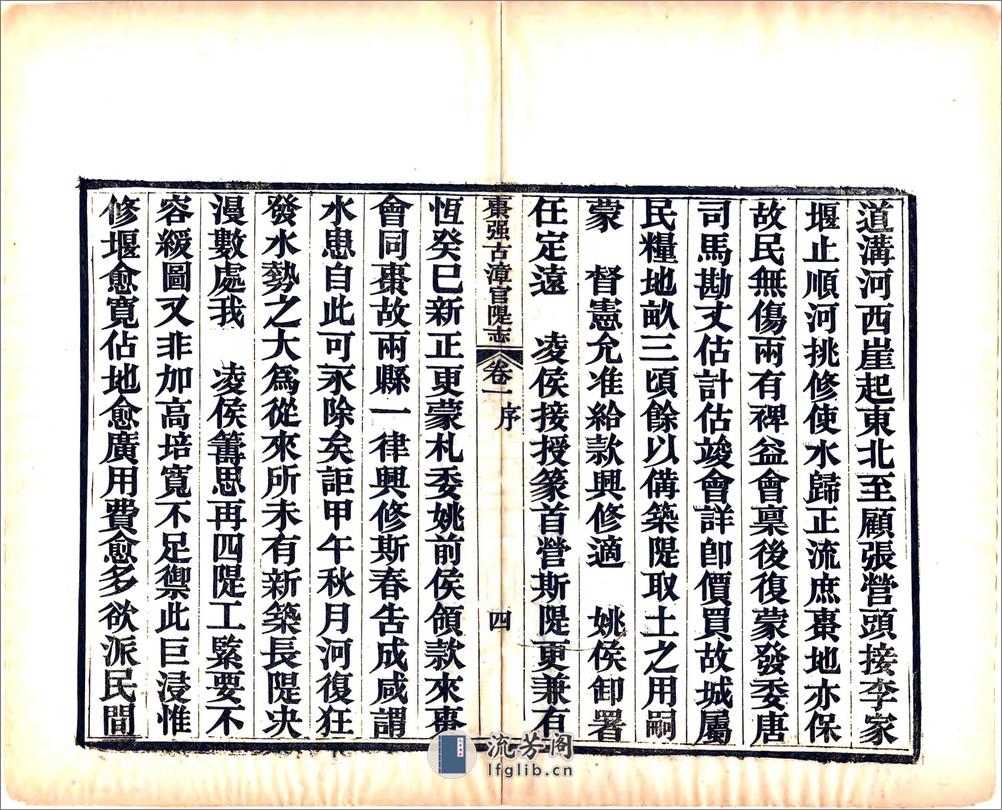 道溝河西崖起東北至顧張營頭接李家
堰止順河挑修使水歸正流庶棗地亦保
故民無傷兩有裨益會稟後復蒙發委唐
司馬勘丈估計估竣會詳卽價買故城屬
民糧地畝三頃餘以備築隄取土之用嗣
蒙　督憲允准給款興修適　姚侯卸署
任定遠　凌侯接授篆首營斯隄更兼有
棗强古漳官隄志　卷一　序　四
恆癸巳新正更蒙札委姚前侯領款來棗
會同棗故兩縣一律興修斯春告成咸謂
水患自此可永除矣詎甲午秋月河復狂
發水勢之大為從來所未有新築長隄決
漫數處我　凌侯籌思再四隄工緊要不
容緩圖又非加高培寬不足禦此巨浸惟
修堰愈寬佔地愈廣用費愈多欲派民間
流芳阁
lfglib.cn